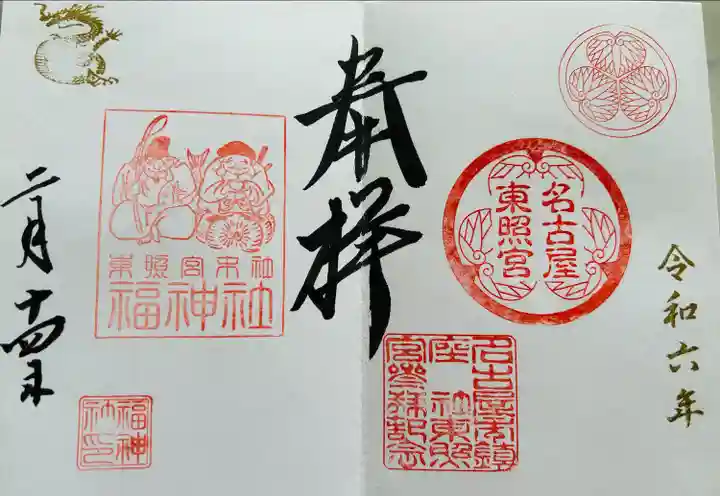 令和六年
名古屋
東照宮
名古屋東鎮
座 社東照
宮参拝記念
奉拝
東照宮末社
福神社
福神
社印
二月十四日